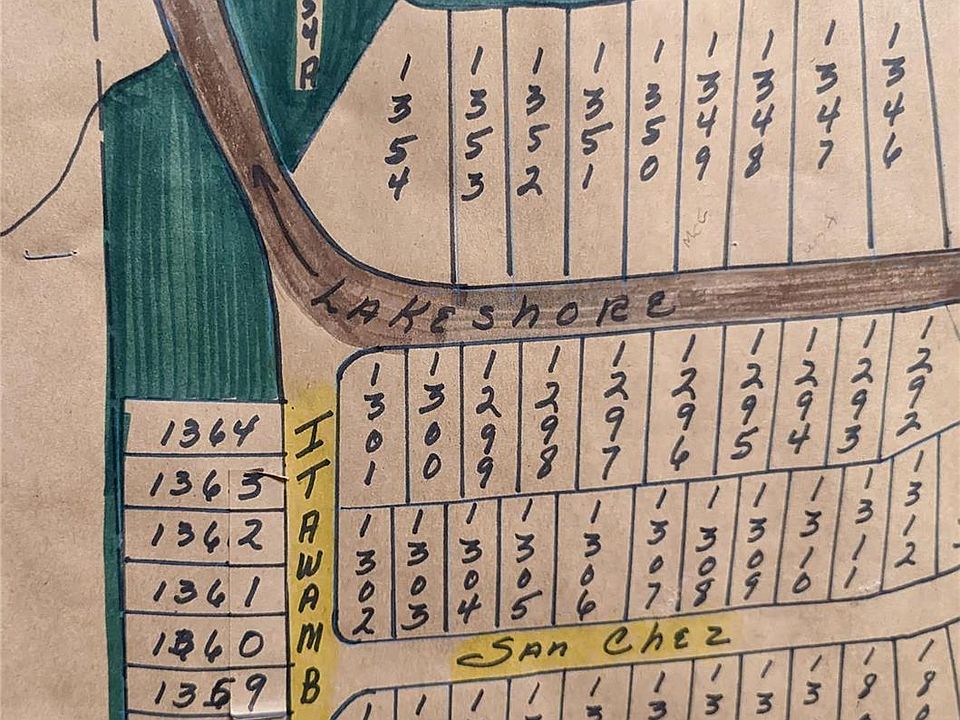 34R
1354
1353
1352
1351
1350
1349
1348
1347
1346
LAKEShORE
1301
1300
1299
1298
1297
1296
1295
1294
1293
1292
1364
1363
1362
1361
1360
1359
ITAWAMB
1302
1303
1304
1305
1306
1307
1308
1309
1310
1311
1312
SAn ChEZ